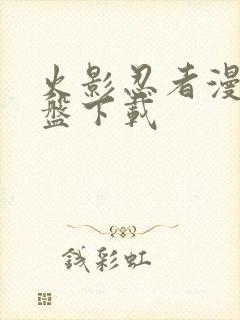 火影忍者漫
盤下載
钱彩虹